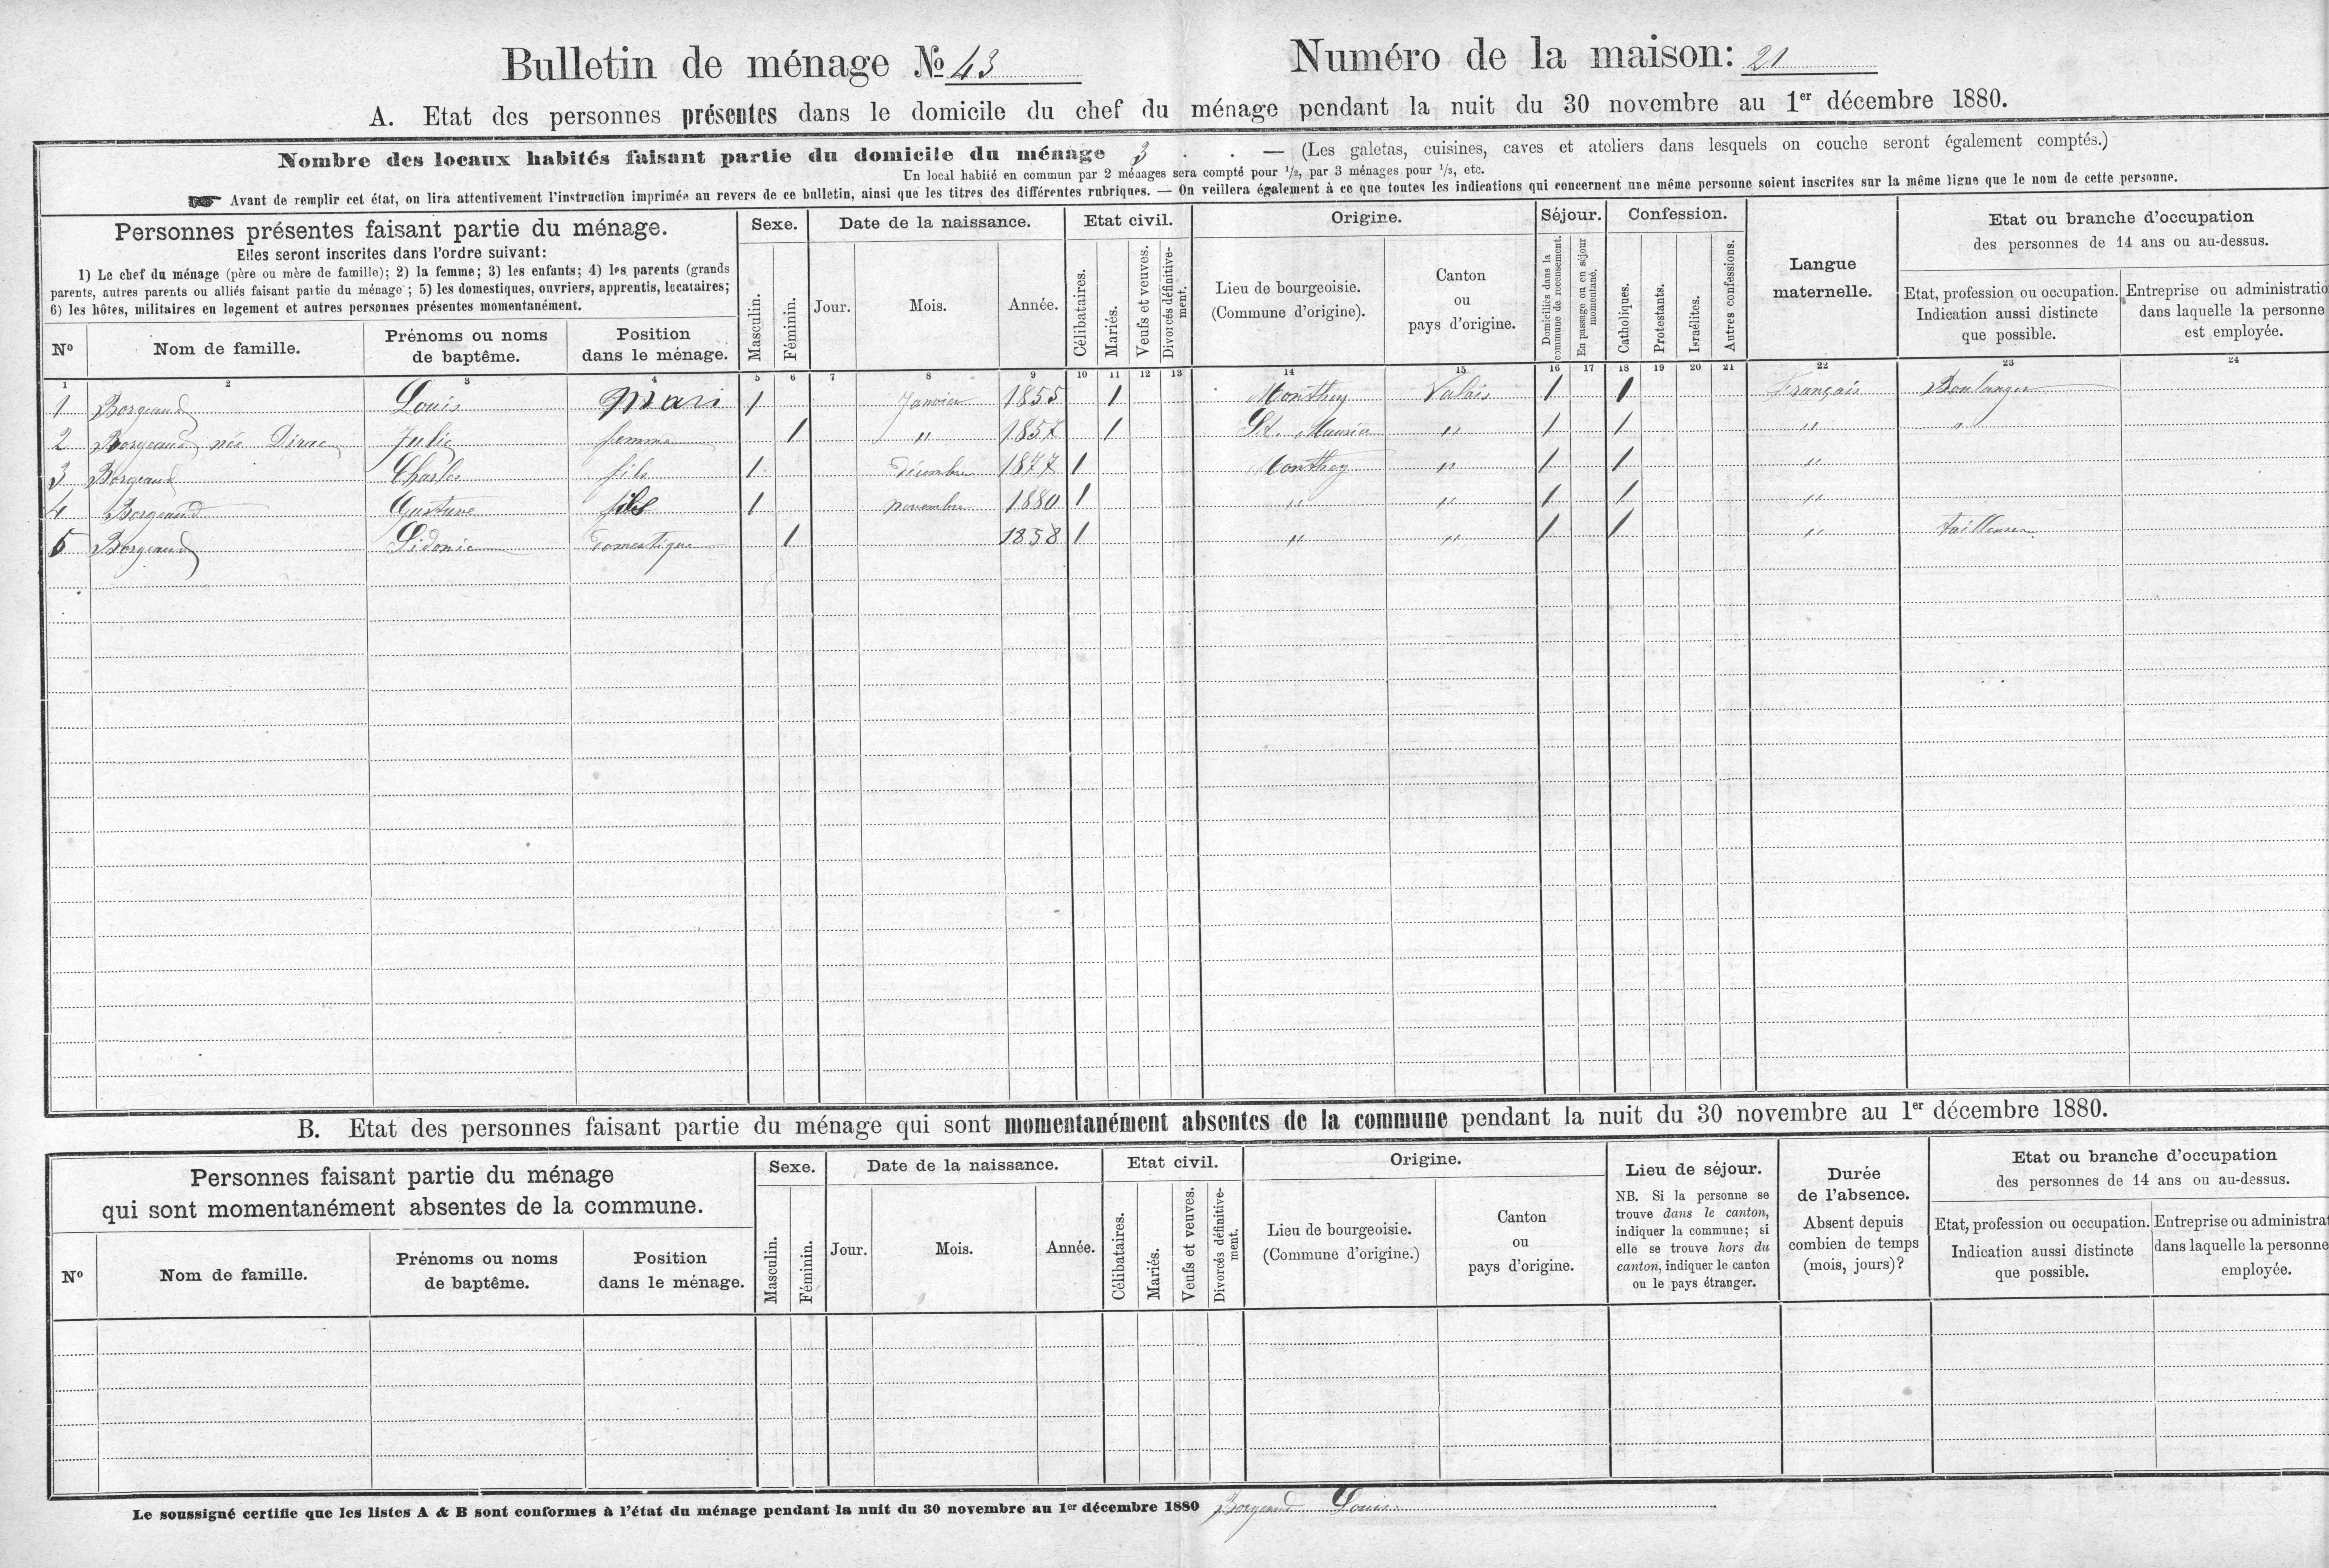 Bulletin de ménage Nº 43 Numéro de la maison: 21
A. Etat des personnes présentes dans le domicile du chef du ménage pendant la nuit du 30 novembre au 1er décembre 1880.
Nombre des locaux habités faisant partie du domicile du ménage 3 . . — (Les galetas, cuisines, caves et ateliers dans lesquels on couche seront également comptés.)
Un local habité en commun par 2 ménages sera compté pour 1/2, par 3 ménages pour 1/3, etc.
Avant de remplir cet état, on lira attentivement l'instruction imprimée au revers de ce bulletin, ainsi que les titres des différentes rubriques. — On veillera également à ce que toutes les indications qui concernent une même personne soient inscrites sur la même ligne que le nom de cette personne.
Personnes présentes faisant partie du ménage.
Elles seront inscrites dans l'ordre suivant:
1) Le chef du ménage (père ou mère de famille); 2) la femme; 3) les enfants; 4) les parents (grands
parents, autres parents ou alliés faisant partie du ménage; 5) les domestiques, ouvriers, apprentis, locataires;
6) les hôtes, militaires en logement et autres personnes présentes momentanément.
Nº Nom de famille. Prénoms ou noms de baptême. Position dans le ménage.
Sexe. Masculin. Féminin.
Date de la naissance. Jour. Mois. Année.
Etat civil. Célibataires. Mariés. Veufs et veuves. Divorcés définitive-ment.
Origine. Lieu de bourgeoisie. (Commune d'origine). Canton ou pays d'origine.
Séjour. Domiciliés dans la commune de recensement. En passage ou en séjour momentané.
Confession. Catholiques. Protestants. Israélites. Autres confessions.
Langue maternelle.
Etat ou branche d'occupation
des personnes de 14 ans ou au-dessus.
Etat, profession ou occupation. Indication aussi distincte que possible.
Entreprise ou administratio dans laquelle la personne est employée.
1 2 3 4 5 6 7 8 9 10 11 12 13 14 15 16 17 18 19 20 21 22 23 24
1 Borgeaud Louis Mari 1 Janvier 1855 1 Monthey Valais 1 1 Français Boulanger
2 Borgeaud née Dirac Julie femme 1 " 1857 1 St. Maurice " 1 1 " "
3 Borgeaud Charles fils 1 Décembre 1877 1 Monthey " 1 1 "
4 Borgeaud Gustave fils 1 novembre 1880 1 " " 1 1 "
5 Borgeaud Sidonie Domestique 1 1858 1 " " 1 1 " tailleuse
B. Etat des personnes faisant partie du ménage qui sont momentanément absentes de la commune pendant la nuit du 30 novembre au 1er décembre 1880.
Personnes faisant partie du ménage
qui sont momentanément absentes de la commune.
Nº Nom de famille. Prénoms ou noms de baptême. Position dans le ménage.
Sexe. Masculin. Féminin.
Date de la naissance. Jour. Mois. Année.
Etat civil. Célibataires. Mariés. Veufs et veuves. Divorcés définitive-ment.
Origine. Lieu de bourgeoisie. (Commune d'origine.) Canton ou pays d'origine.
Lieu de séjour.
NB. Si la personne se
trouve dans le canton,
indiquer la commune; si
elle se trouve hors du
canton, indiquer le canton
ou le pays étranger.
Durée
de l'absence.
Absent depuis
combien de temps
(mois, jours)?
Etat ou branche d'occupation
des personnes de 14 ans ou au-dessus.
Etat, profession ou occupation. Indication aussi distincte que possible.
Entreprise ou administra dans laquelle la personne employée.
Le soussigné certifie que les listes A & B sont conformes à l'état du ménage pendant la nuit du 30 novembre au 1er décembre 1880 Borgeaud Louis